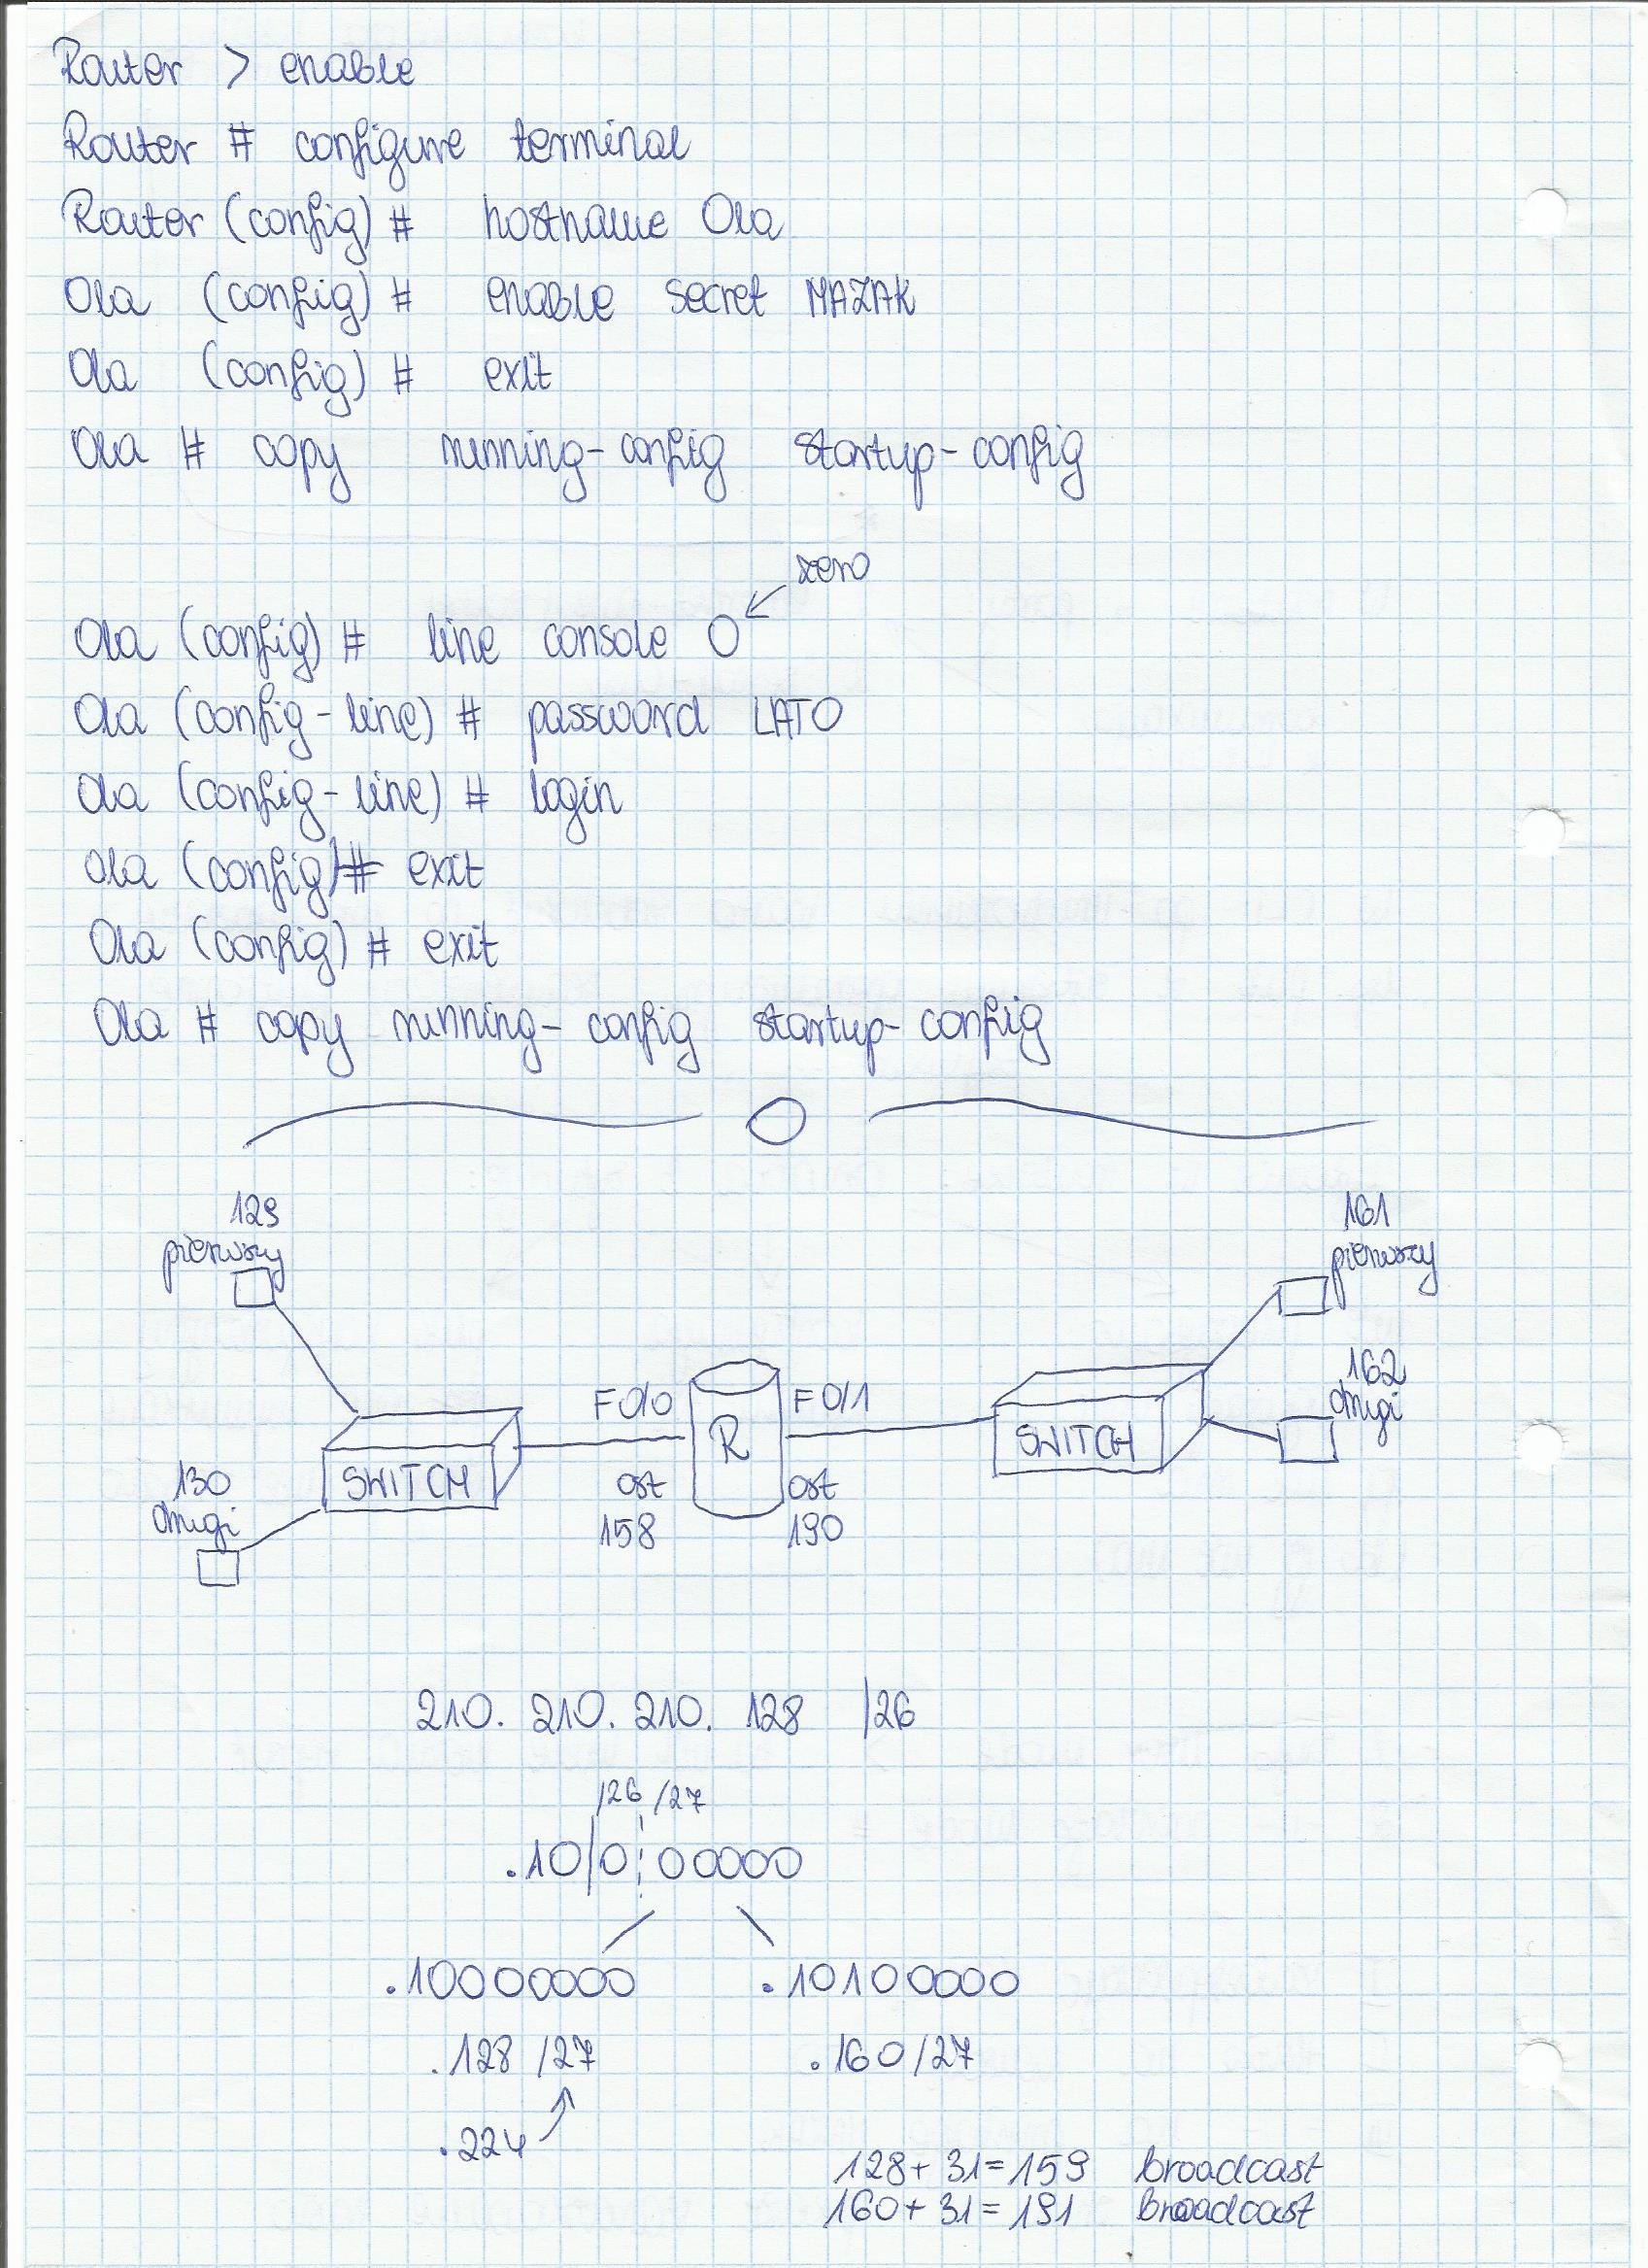 Router > enable
Router # configure terminal
Router (config) # hostname Ola
Ola (config) # enable secret MAZAK
Ola (config) # exit
Ola # copy running-config startup-config
zero
Ola (config) # line console 0
Ola (config-line) # password LATO
Ola (config-line) # login
Ola (config) # exit
Ola (config) # exit
Ola # copy running-config startup-config
129
pierwszy
161
pierwszy
162
drugi
F0/0
R
F0/1
SWITCH
SWITCH
130
drugi
ost
158
ost
190
210. 210. 210. 128 /26
/26 /27
.10|0¦00000
.10000000 .10100000
.128 /27 .160/27
.224
128+31=159 broadcast
160+31=191 broadcast